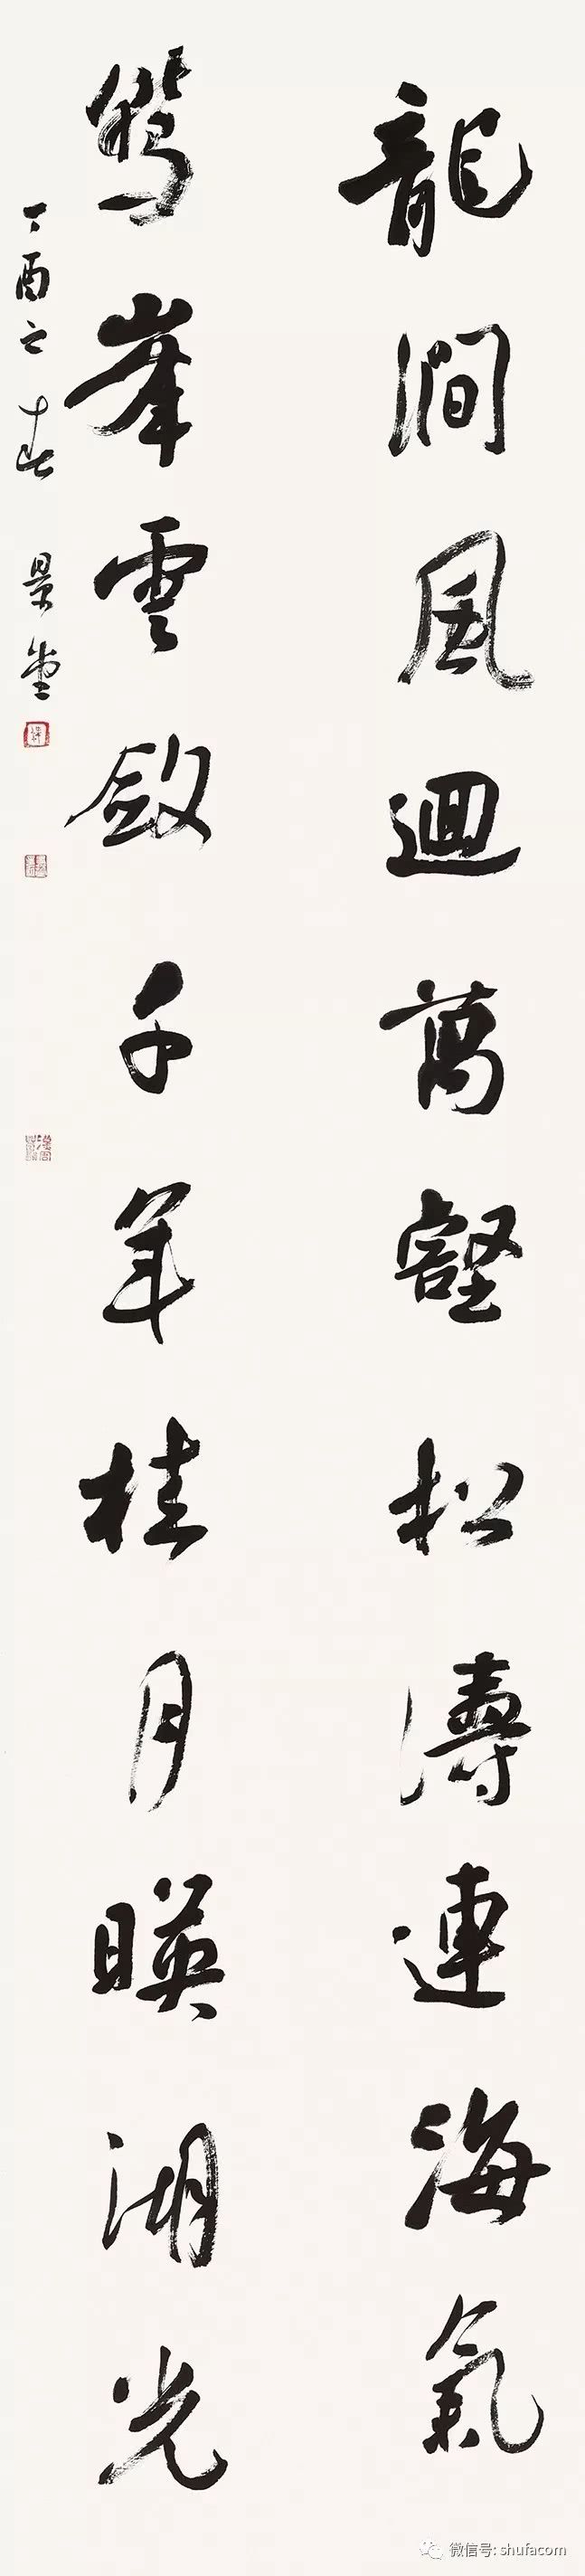 龍澗風迴萬壑松濤連海氣
鷲峯雲斂千年桂月暎湖光
丁酉之春 景堂
微信号: shufacom